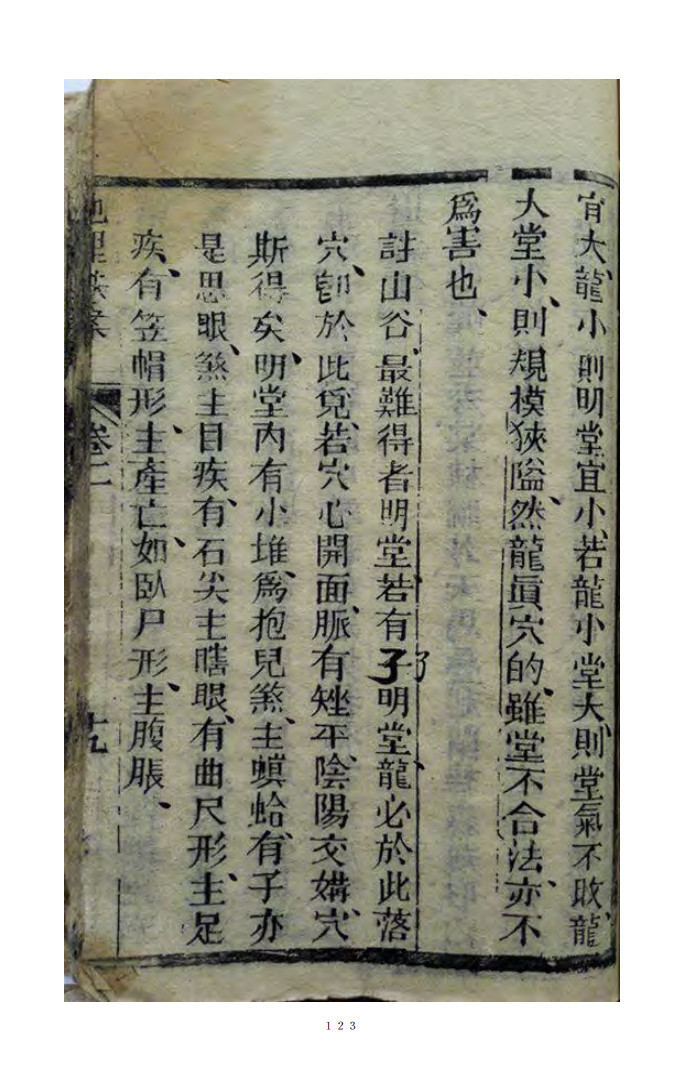 宜大、龍小則明堂宜小、若龍小堂大、則堂氣不收、龍
大堂小、則規模狹隘、然龍眞穴的、雖堂不合法、亦不
爲害也、
註山谷、最難得者明堂、若有子明堂、龍必於此落
穴、卽於此覓、若穴心開面、脈有矬平、陰陽交媾、穴
斯得矣、明堂內有小堆、爲抱兒煞、主螟蛤、有子亦
是思眼、煞主目疾、有石尖主瞎眼、有曲尺形、主足
疾、有笠帽形、主產亡、如臥尸形、主腹脹、
地理
卷二
123